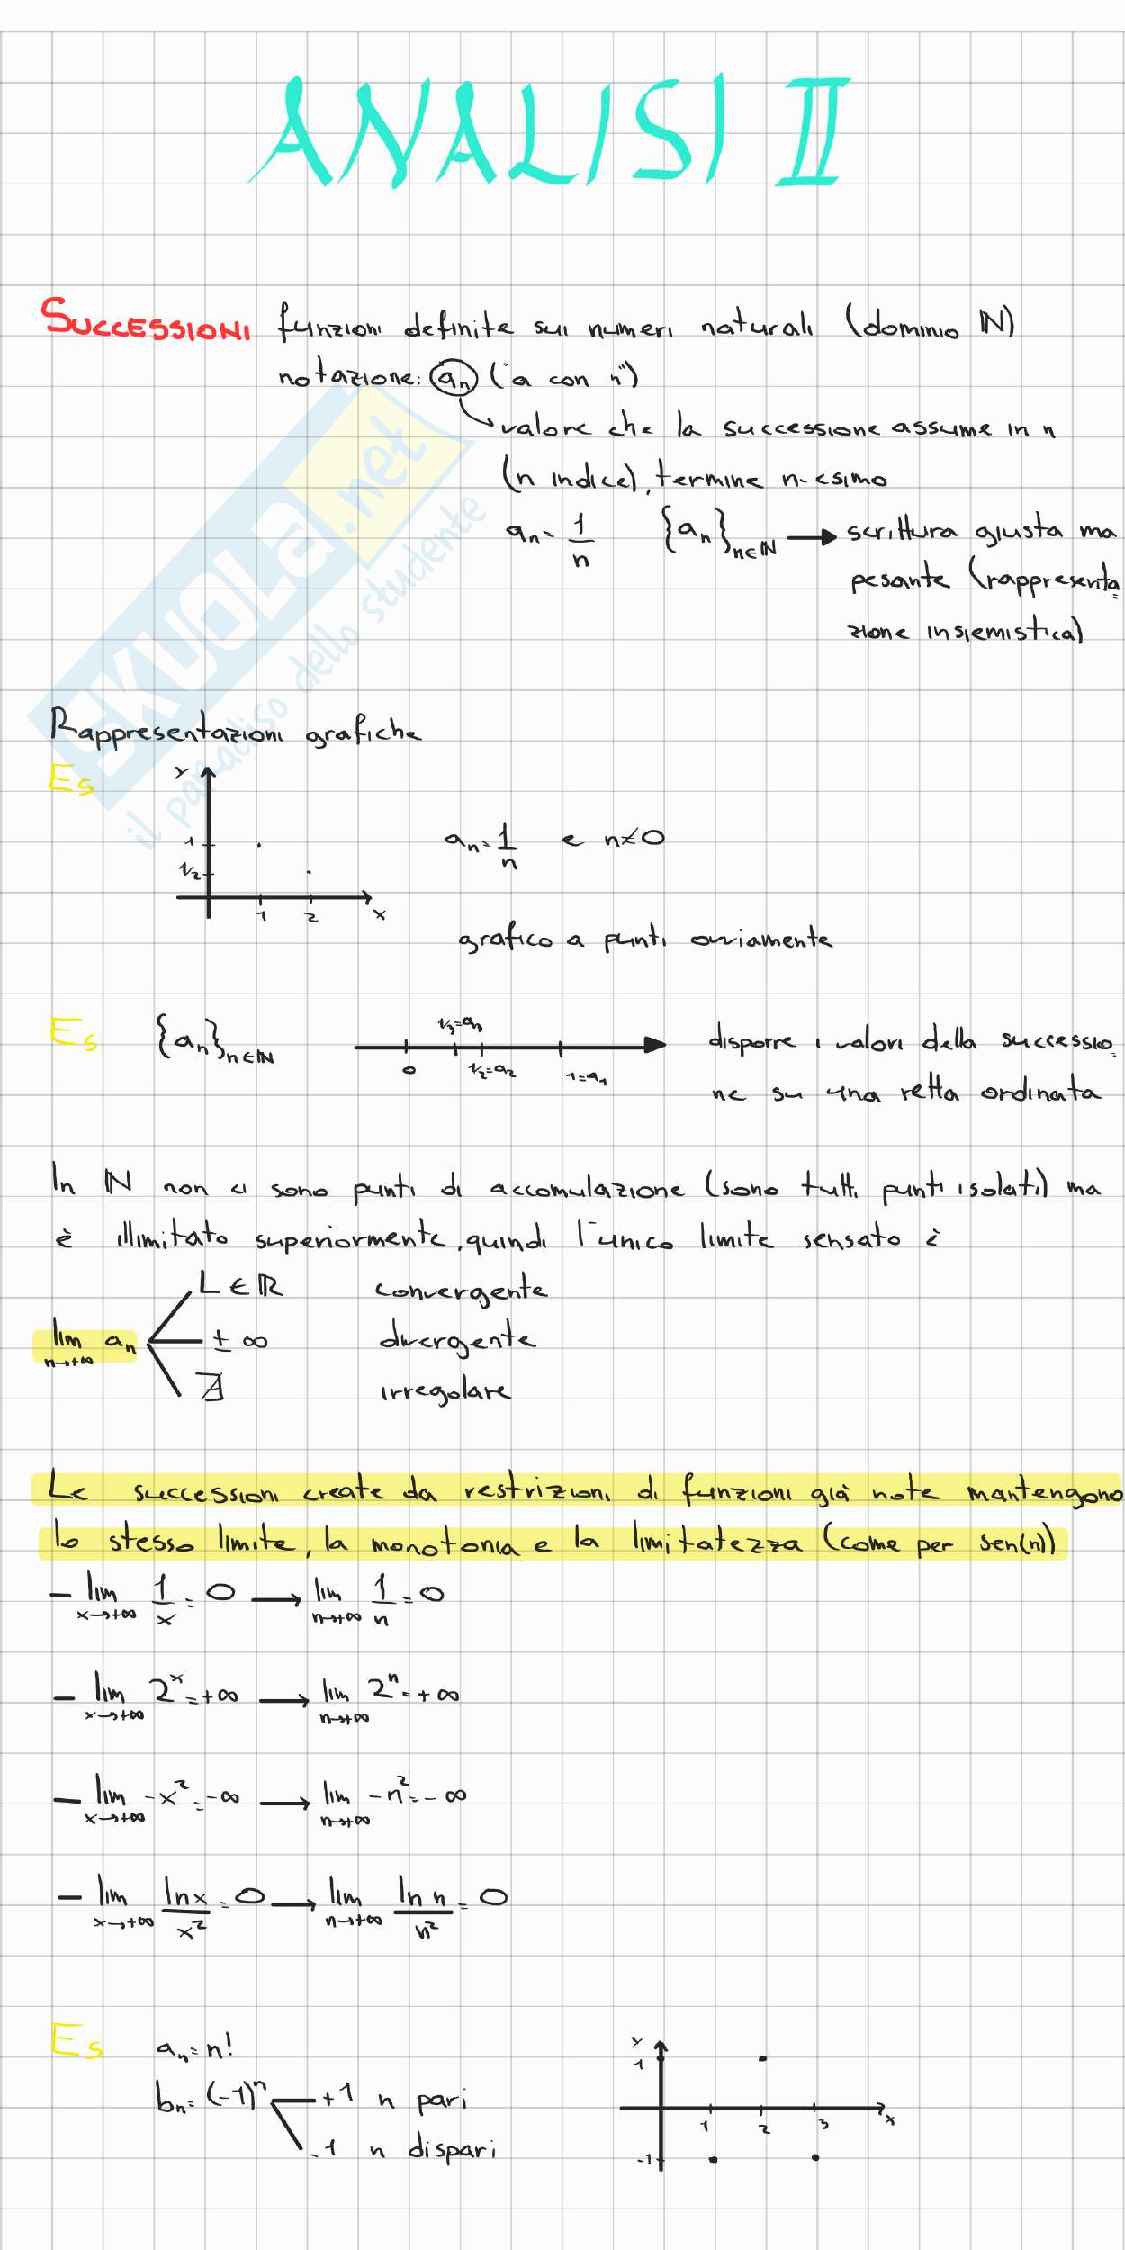 ANALISI II
SUCCESSIONI funzioni definite sui numeri naturali (dominio ℕ)
notazione: aₙ ("a con n")
valore che la successione assume in n
(n indice), termine n-esimo
aₙ = 1/n {aₙ}ₙ∈ℕ → scrittura giusta ma
pesante (rappresenta
zione insiemistica)
SKUOLA.net
il paradiso dello studente
Rappresentazioni grafiche
Es
y
1
1/2
1 2 x
aₙ = 1/n e n≠0
grafico a punti ovviamente
Es {aₙ}ₙ∈ℕ
1/3=aₙ
0 1/2=a₂ 1=a₁
disporre i valori della successio
ne su una retta ordinata
In ℕ non ci sono punti di accomulazione (sono tutti punti isolati) ma
è illimitato superiormente, quindi l'unico limite sensato è
L∈ℝ convergente
lim n→+∞ aₙ ±∞ divergente
∄ irregolare
Le successioni create da restrizioni di funzioni già note mantengono
lo stesso limite, la monotonia e la limitatezza (come per sen(n))
- lim x→+∞ 1/x = 0 → lim n→+∞ 1/n = 0
- lim x→+∞ 2ˣ = +∞ → lim n→+∞ 2ⁿ = +∞
- lim x→+∞ -x² = -∞ → lim n→+∞ -n² = -∞
- lim x→+∞ lnx/x² = 0 → lim n→+∞ ln n/n² = 0
Es aₙ = n!
bₙ = (-1)ⁿ +1 n pari
-1 n dispari
y
1
1 2 3 x
-1